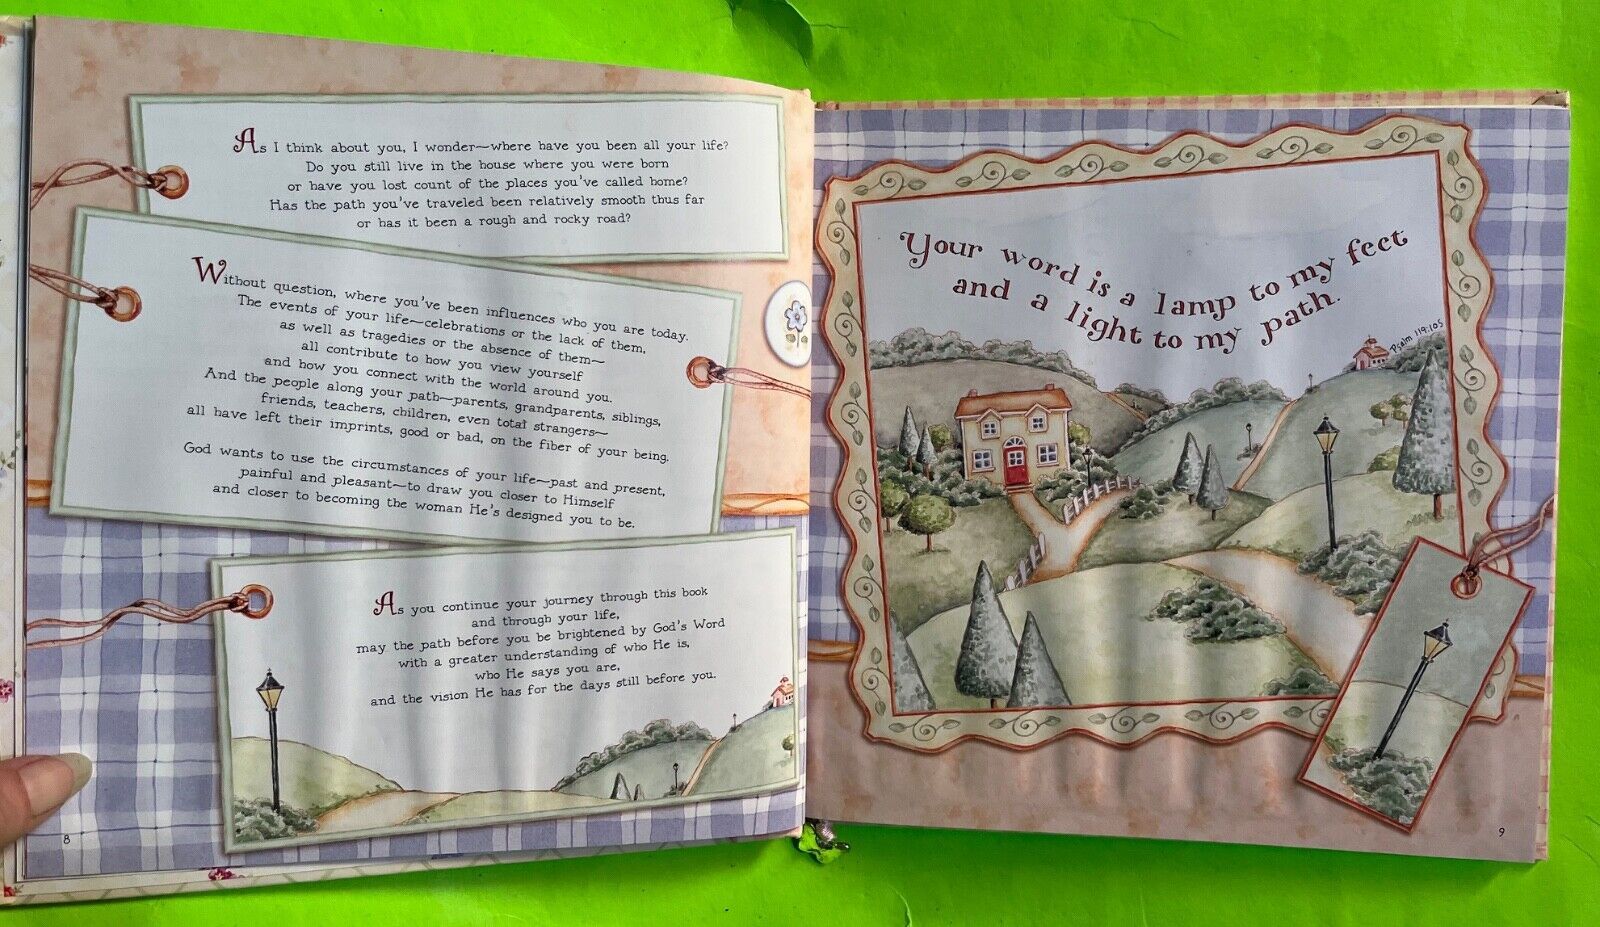 As I think about you, I wonder—where have you been all your life?
Do you still live in the house where you were born
or have you lost count of the places you've called home?
Has the path you've traveled been relatively smooth thus far
or has it been a rough and rocky road?
Without question, where you've been influences who you are today.
The events of your life—celebrations or the lack of them,
as well as tragedies or the absence of them—
all contribute to how you view yourself
and how you connect with the world around you.
And the people along your path—parents, grandparents, siblings,
friends, teachers, children, even total strangers—
all have left their imprints, good or bad, on the fiber of your being.
God wants to use the circumstances of your life—past and present,
painful and pleasant—to draw you closer to Himself
and closer to becoming the woman He's designed you to be.
As you continue your journey through this book
and through your life,
may the path before you be brightened by God's Word
with a greater understanding of who He is,
who He says you are,
and the vision He has for the days still before you.
8
Your word is a lamp to my feet
and a light to my path.
Psalm 119:105
9